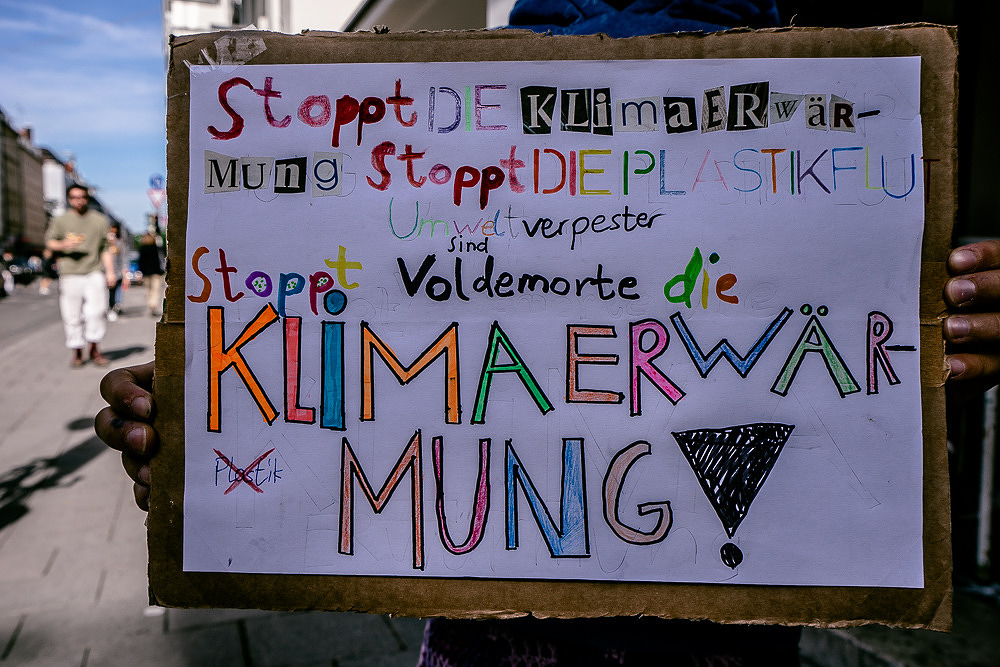 Stoppt DIE KLimaERwäR-
Mung Stoppt DIE PLASTIKFLUT
Umweltverpester
sind
Stoppt Voldemorte die
KLiMAERWÄR-
MUNG!
Plastik